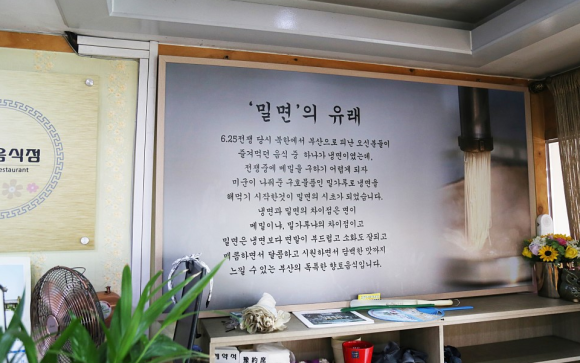 '밀면'의 유래
6.25전쟁 당시 북한에서 부산으로 피난 오신분들이
즐겨먹던 음식 중 하나가 냉면이었는데,
전쟁중에 메밀을 구하기 어렵게 되자
미군이 나눠준 구호물품인 밀가루로냉면을
해먹기 시작한것이 밀면의 시초가 되었습니다.
냉면과 밀면의 차이점은 면이
메밀이냐, 밀가루냐의 차이점이고
밀면은 냉면보다 면발이 부드럽고 소화도 잘되고
매콤하면서 달콤하고 시원하면서 담백한 맛까지
느낄 수 있는 부산의 독특한 향토음식입니다.
음식점
estaurant